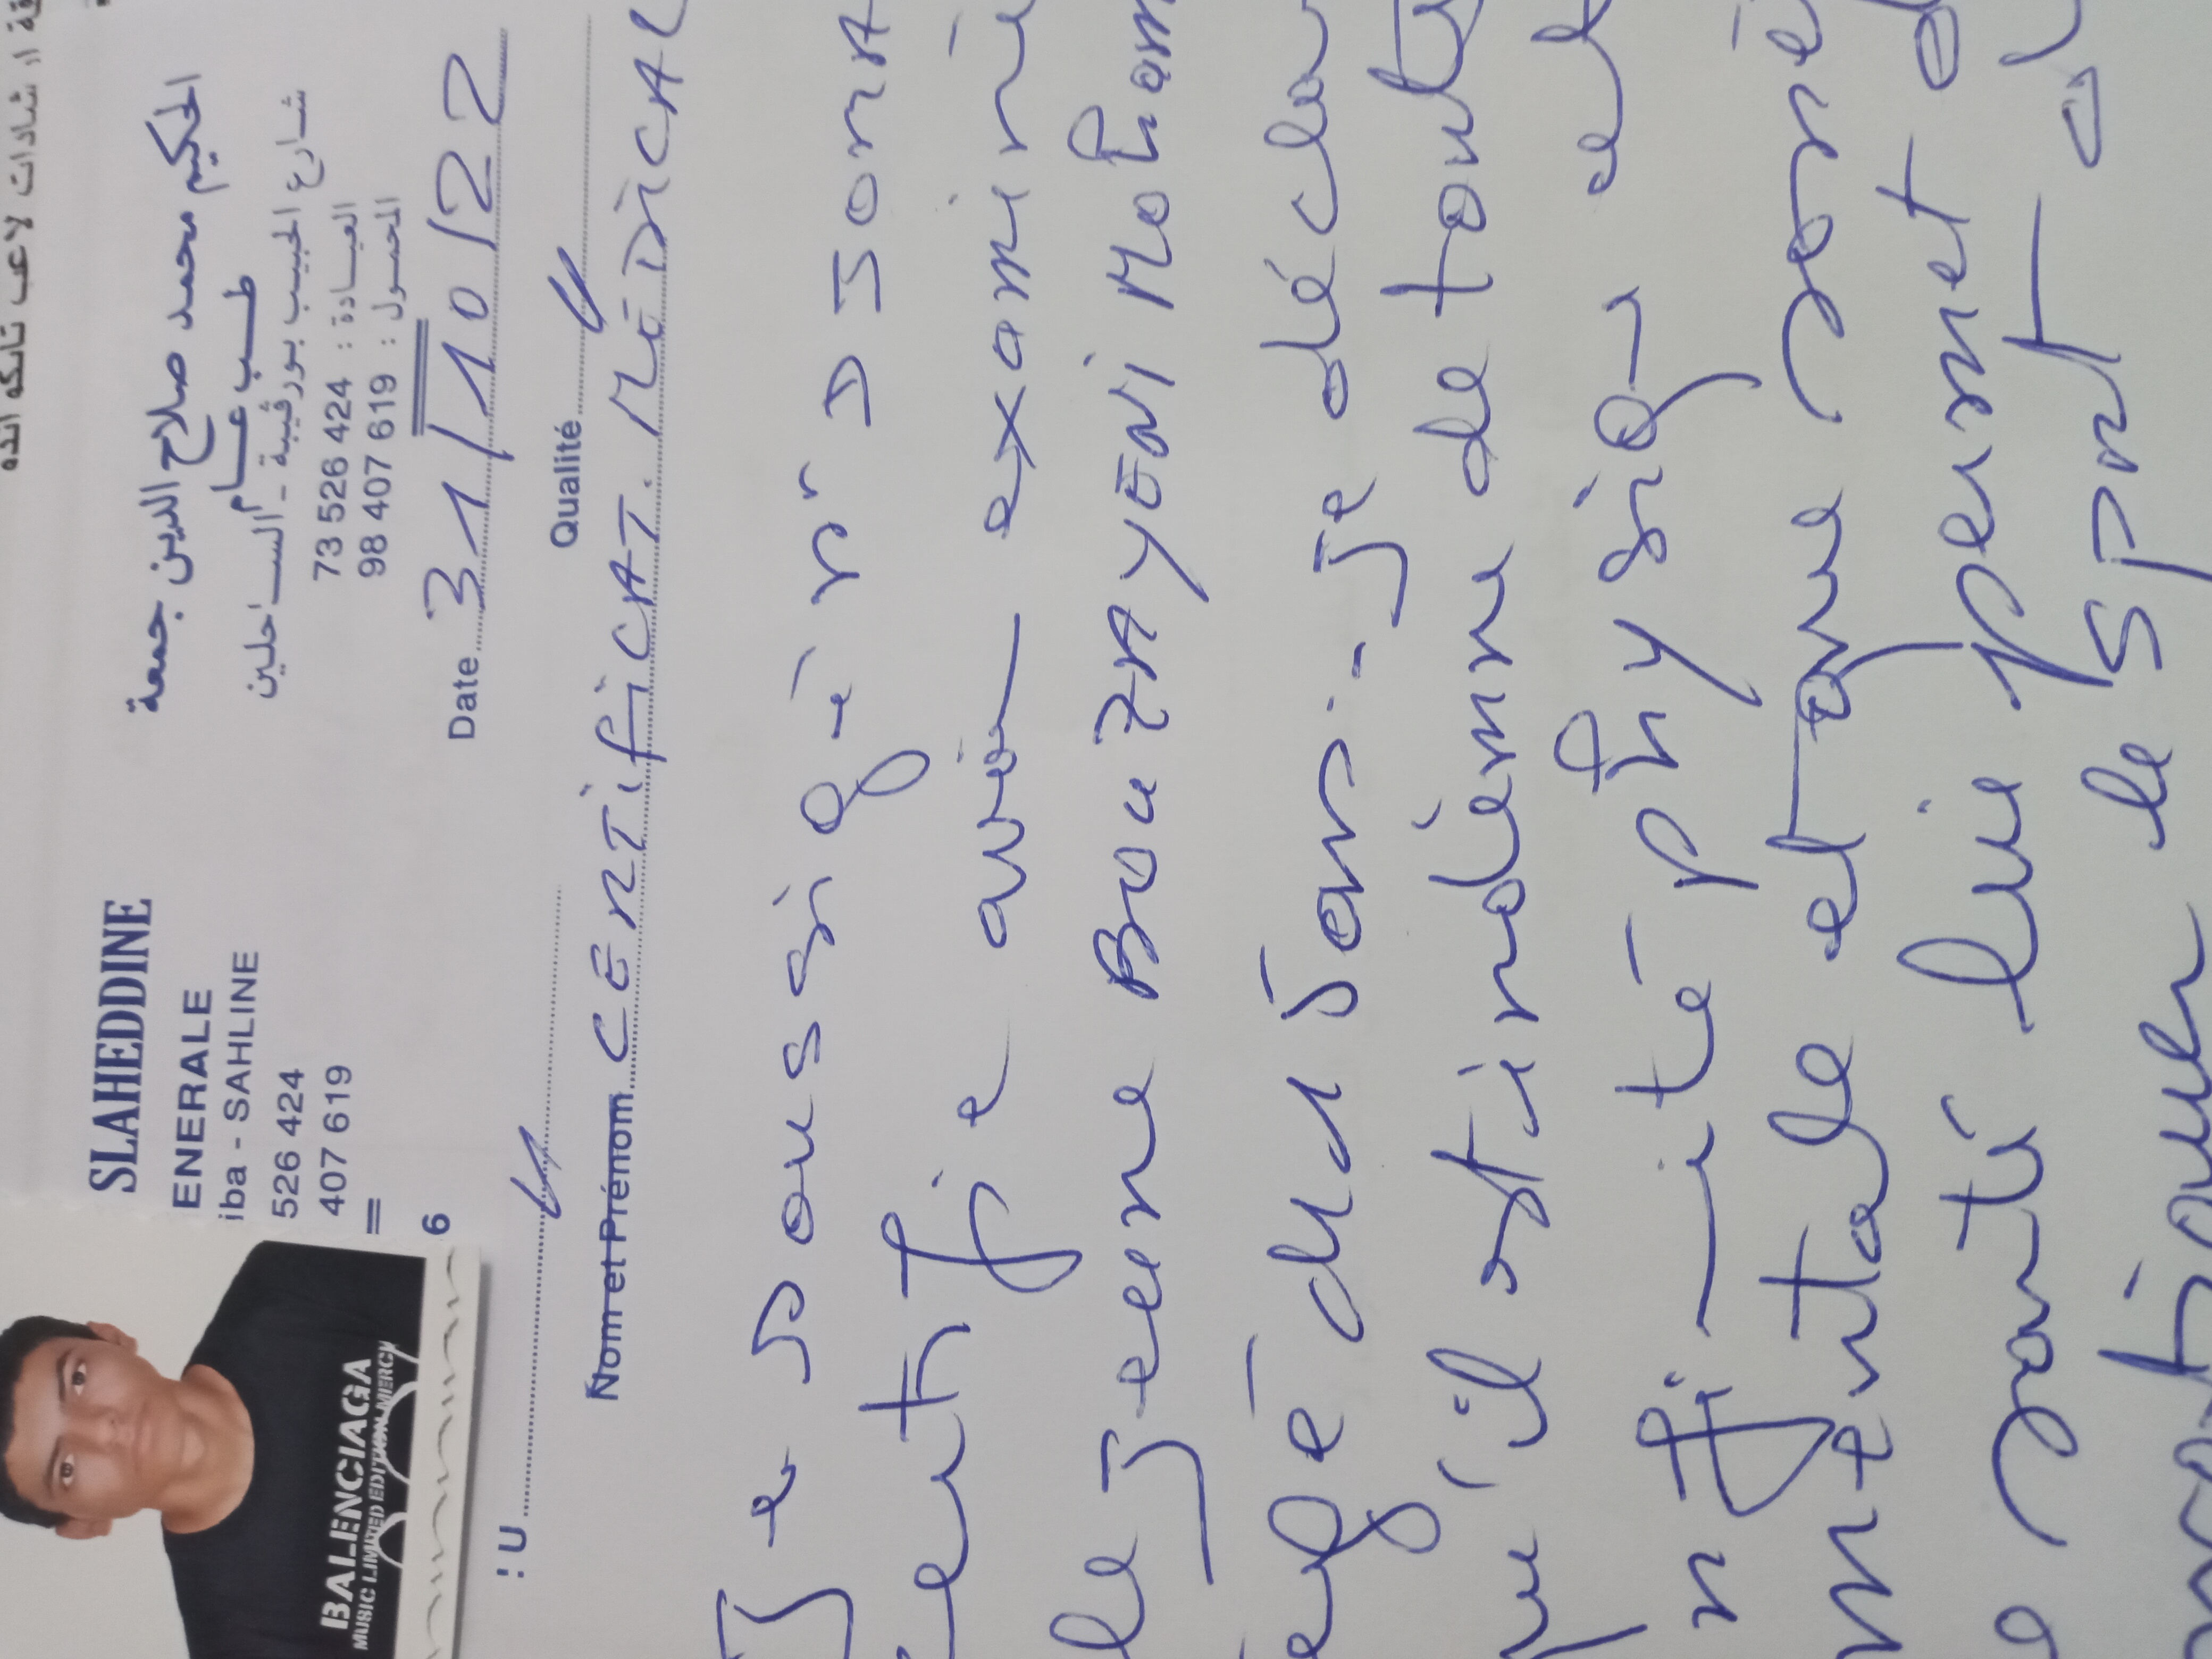 شادات لاعب تايكواندو
SLAHEDDINE
ENERALE
iba - SAHLINE
526 424
407 619
الحكيم محمد صلاح الدين جمعة
طب عام
شارع الحبيب بورقيبة - الساحلين
العيادة : 73 526 424
المحمول : 98 407 619
BALENCIAGA
MUSIC LIMITED EDITION MERCH
6
Date 31/10/22
: U
Qualité
Nom et Prénom CERTIFICAT. MÉDICAL
Je soussigné Dr
certifie avoir examiné
le jeune BOUZAYENI Moham
âgé de
qu'il est indemne de toute
physique et
mentale et que son é
santé lui permet d
le sport